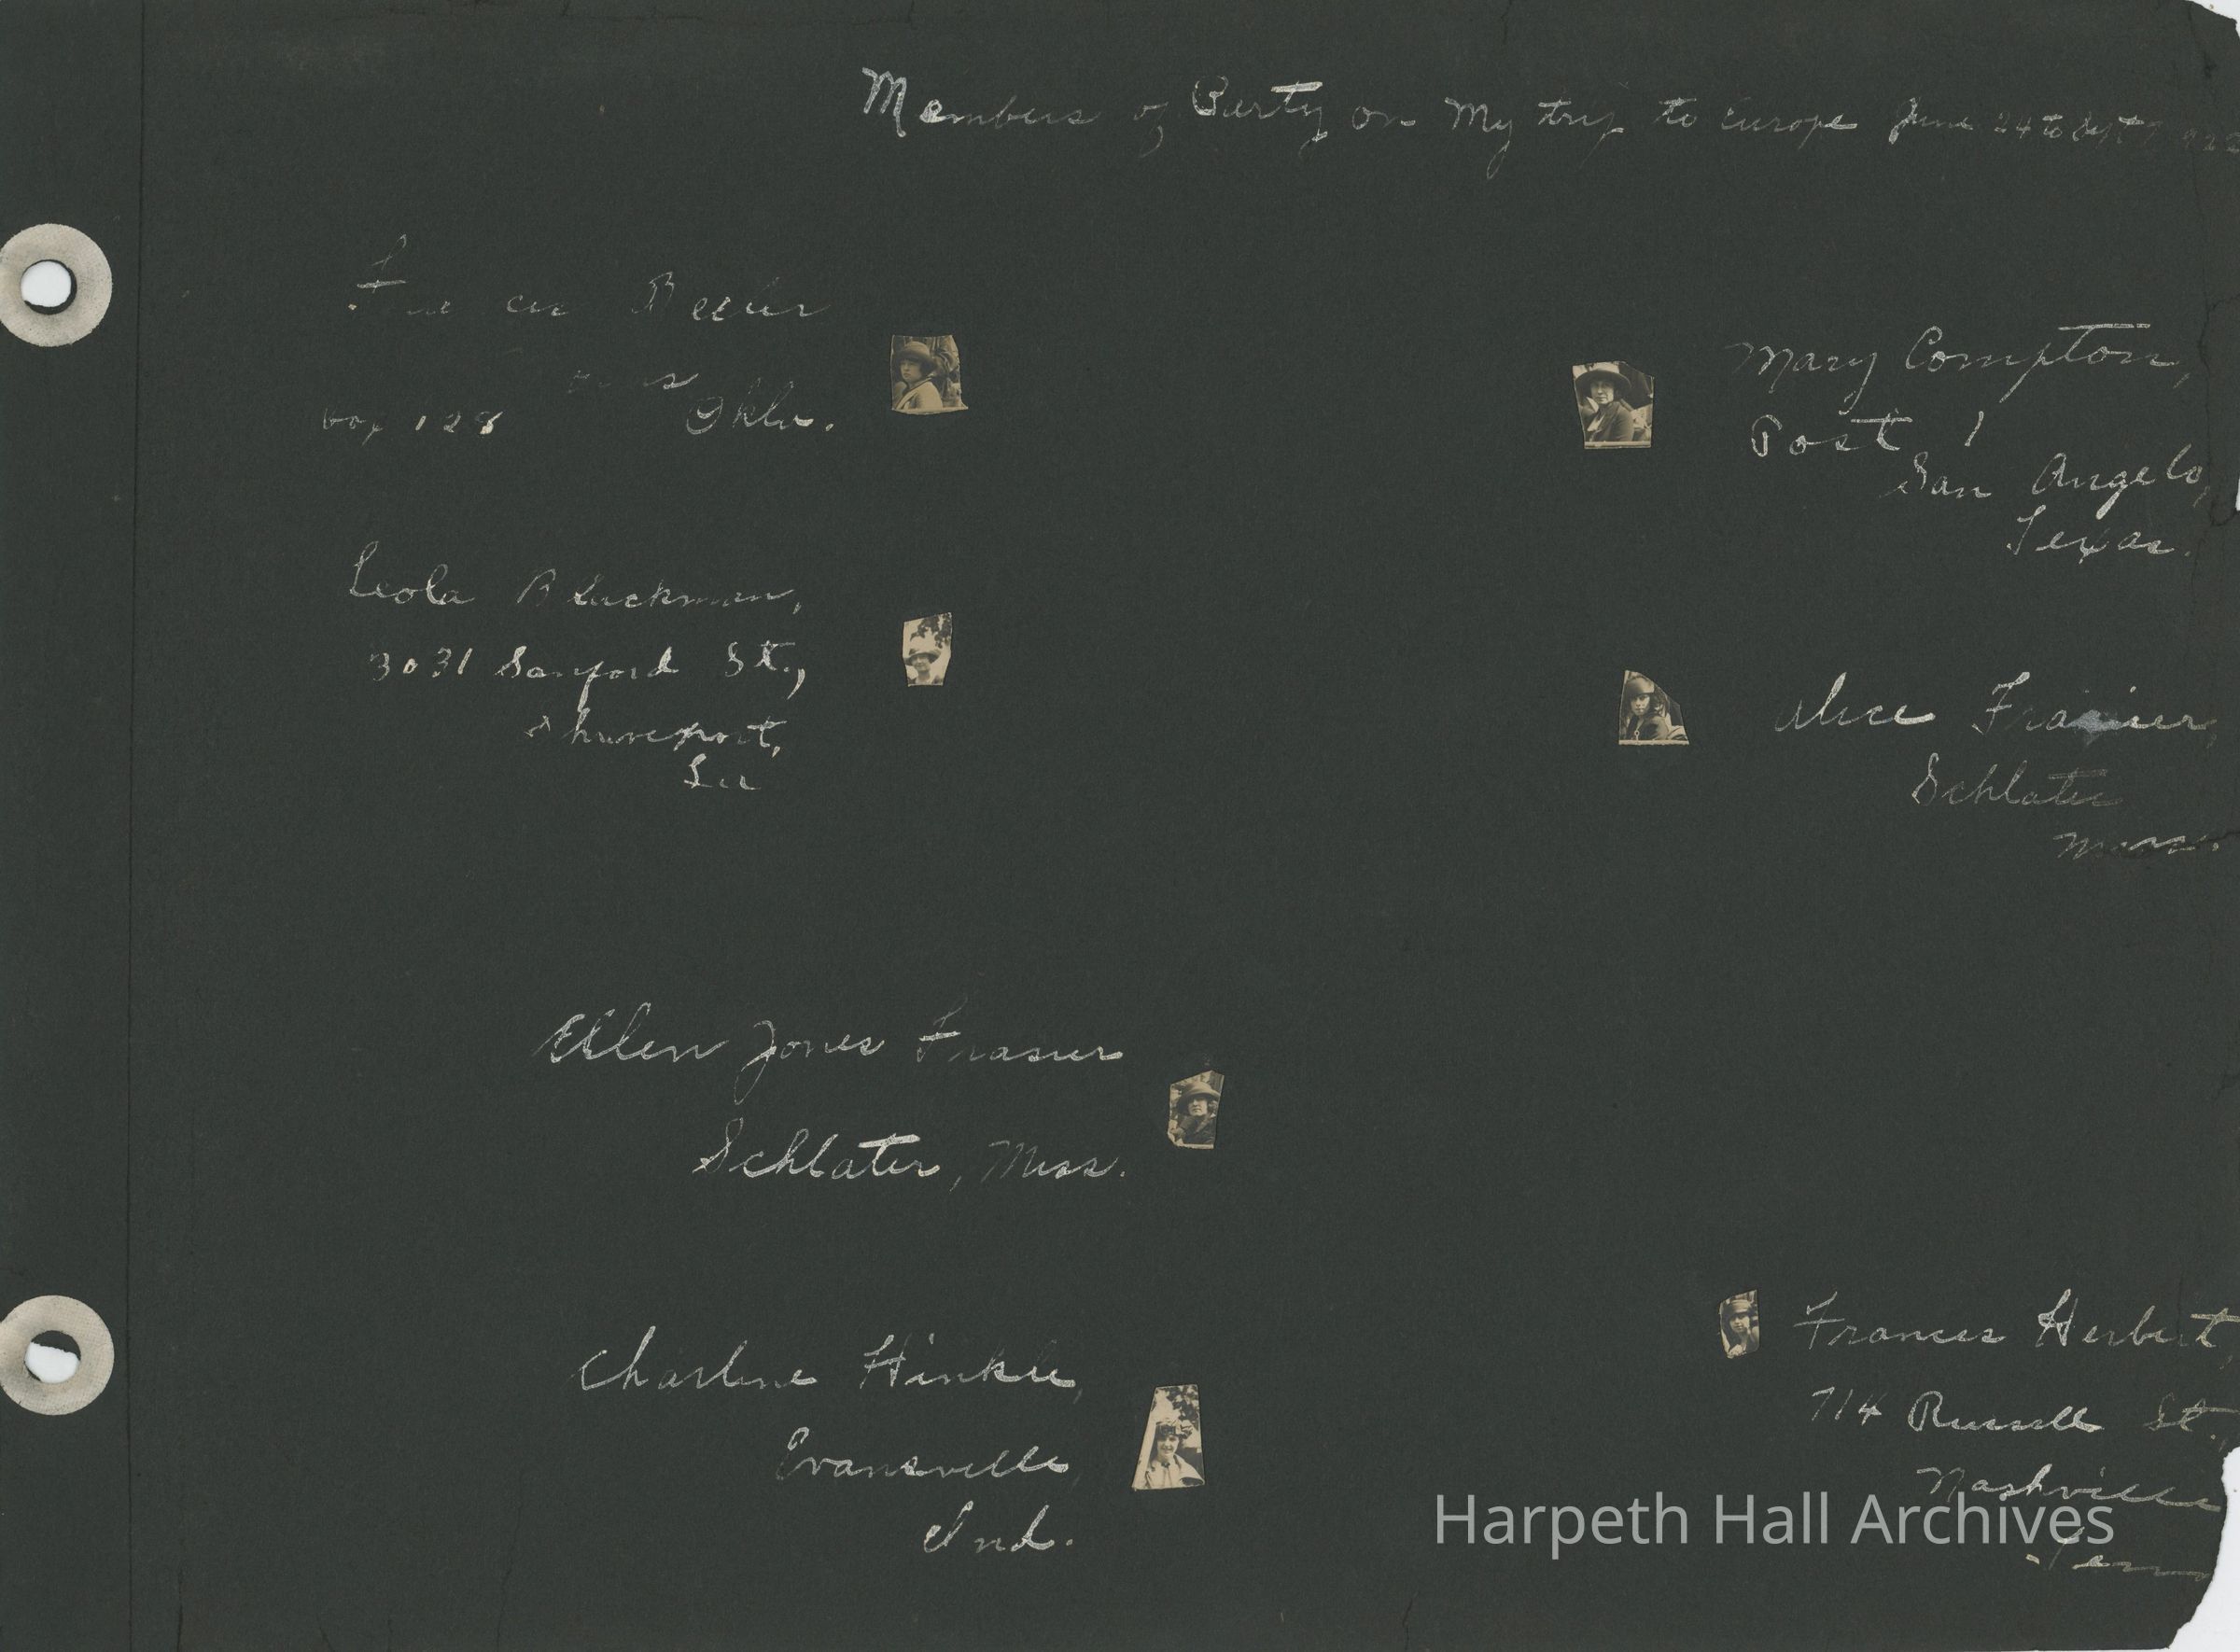 Members of Party on My trip to Europe June 24 to Sept
Box 128 Okla.
Mary Compton,
Post 1
San Angelo,
Texas.
Leola Blackman,
3031 Sanford St.,
Shreveport,
La
Alice Frasier,
Schlater
Miss.
Ellen Jones Frasier
Schlater, Miss.
Charlene Hinkle,
Evansville,
Ind.
Frances Herbert,
714 Russell St.,
Nashville
Tenn
Harpeth Hall Archives